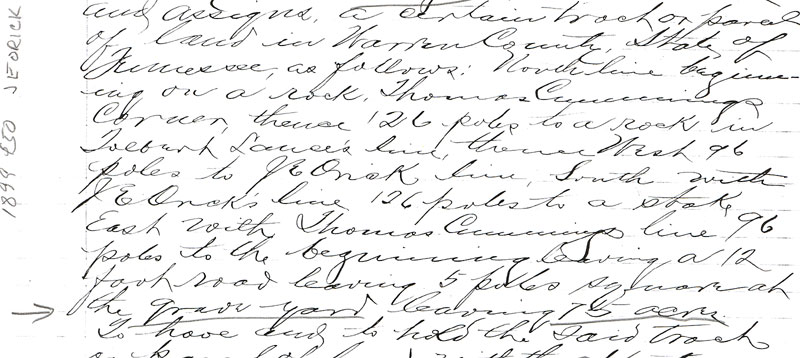 and assigns, a certain tract or parcel
of land in Warren County, State of
Tennessee, as follows: North line beginn-
ing on a rock, Thomas Cummings
Corner, thence 126 poles to a rock in
Tolburt Lance's line, thence West 96
poles to J E Orick line, South with
J E Orick's line 126 poles to a stake,
East with Thomas Cummings line 96
poles to the beginning leaving a 12
foot road leaving 5 poles square at
the grave yard leaving 75 acres.
To have and to hold the said tract
1899 JEORICK